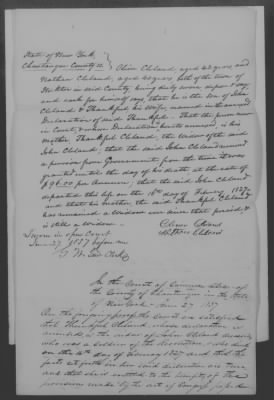 State of New York,
Chautauque County ss. Oliver Cleland, aged 42 years, and
Nathan Cleland, aged 40 years, both of the town of
in said County being duly sworn depose & say,
and each for himself says, that he is the son of John
Cleland & Thankful his wife, named in the annexed
Declaration of said Thankful. That the
in Court & whose Declaration hereto annexed, is his
mother Thankful Cleland, the widow of the said
John Cleland, that the said John Cleland
a pension from Government from the time it was
granted until the day of his death at the rate of
$96.00 per Annum; that the said John Cleland
departed this life on the 16th day of February 1827,
and that his mother, the said Thankful Cleland
has remained a widow ever since that period &
is still a widow.
Sworn in open Court
June 27, 1837 before me
Clerk
In the Court of Common Pleas of
the County of Chautauque in the State
of New York – June 27, 1837
On the foregoing proofs the Court are satisfied
that Thankful Cleland, whose declaration is
annexed, is the widow of John Cleland deceased
who was a soldier of the revolution, who died
on the 16th day of February 1827 and that the
facts set forth in her said declaration are true
and that she is entitled to the benefit of the
provision made by the act of Congress